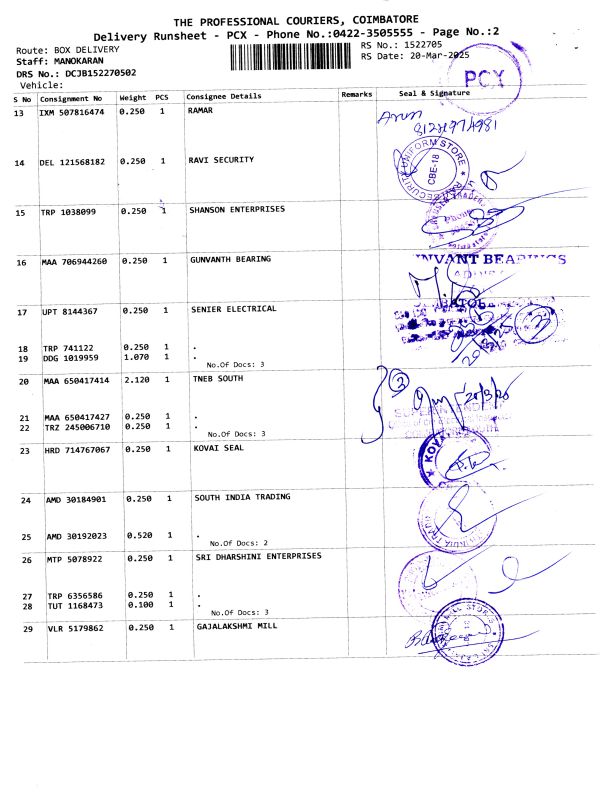 THE PROFESSIONAL COURIERS, COIMBATORE
Delivery Runsheet - PCX - Phone No.:0422-3505555 - Page No.:2
Route: BOX DELIVERY
RS No.: 1522705
Staff: MANOKARAN
RS Date: 20-Mar-2025
DRS No.: DCJB152270502
Vehicle:
PCX
S No Consignment No Weight PCS Consignee Details Remarks Seal & Signature
13 IXM 507816474 0.250 1 RAMAR
Arun
14 DEL 121568182 0.250 1 RAVI SECURITY
UNIFORM STORE
CBE-18
15 TRP 1038099 0.250 1 SHANSON ENTERPRISES
16 MAA 706944260 0.250 1 GUNVANTH BEARING
NVANT BEARINGS
17 UPT 8144367 0.250 1 SENIER ELECTRICAL
18 TRP 741122 0.250 1 .
19 DDG 1019959 1.070 1 .
No.Of Docs: 3
20 MAA 650417414 2.120 1 TNEB SOUTH
3
20/3/25
21 MAA 650417427 0.250 1 .
22 TRZ 245006710 0.250 1 .
No.Of Docs: 3
23 HRD 714767067 0.250 1 KOVAI SEAL
KOVAI
24 AMD 30184901 0.250 1 SOUTH INDIA TRADING
25 AMD 30192023 0.520 1 .
No.Of Docs: 2
26 MTP 5078922 0.250 1 SRI DHARSHINI ENTERPRISES
27 TRP 6356586 0.250 1 .
28 TUT 1168473 0.100 1 .
No.Of Docs: 3
29 VLR 5179862 0.250 1 GAJALAKSHMI MILL